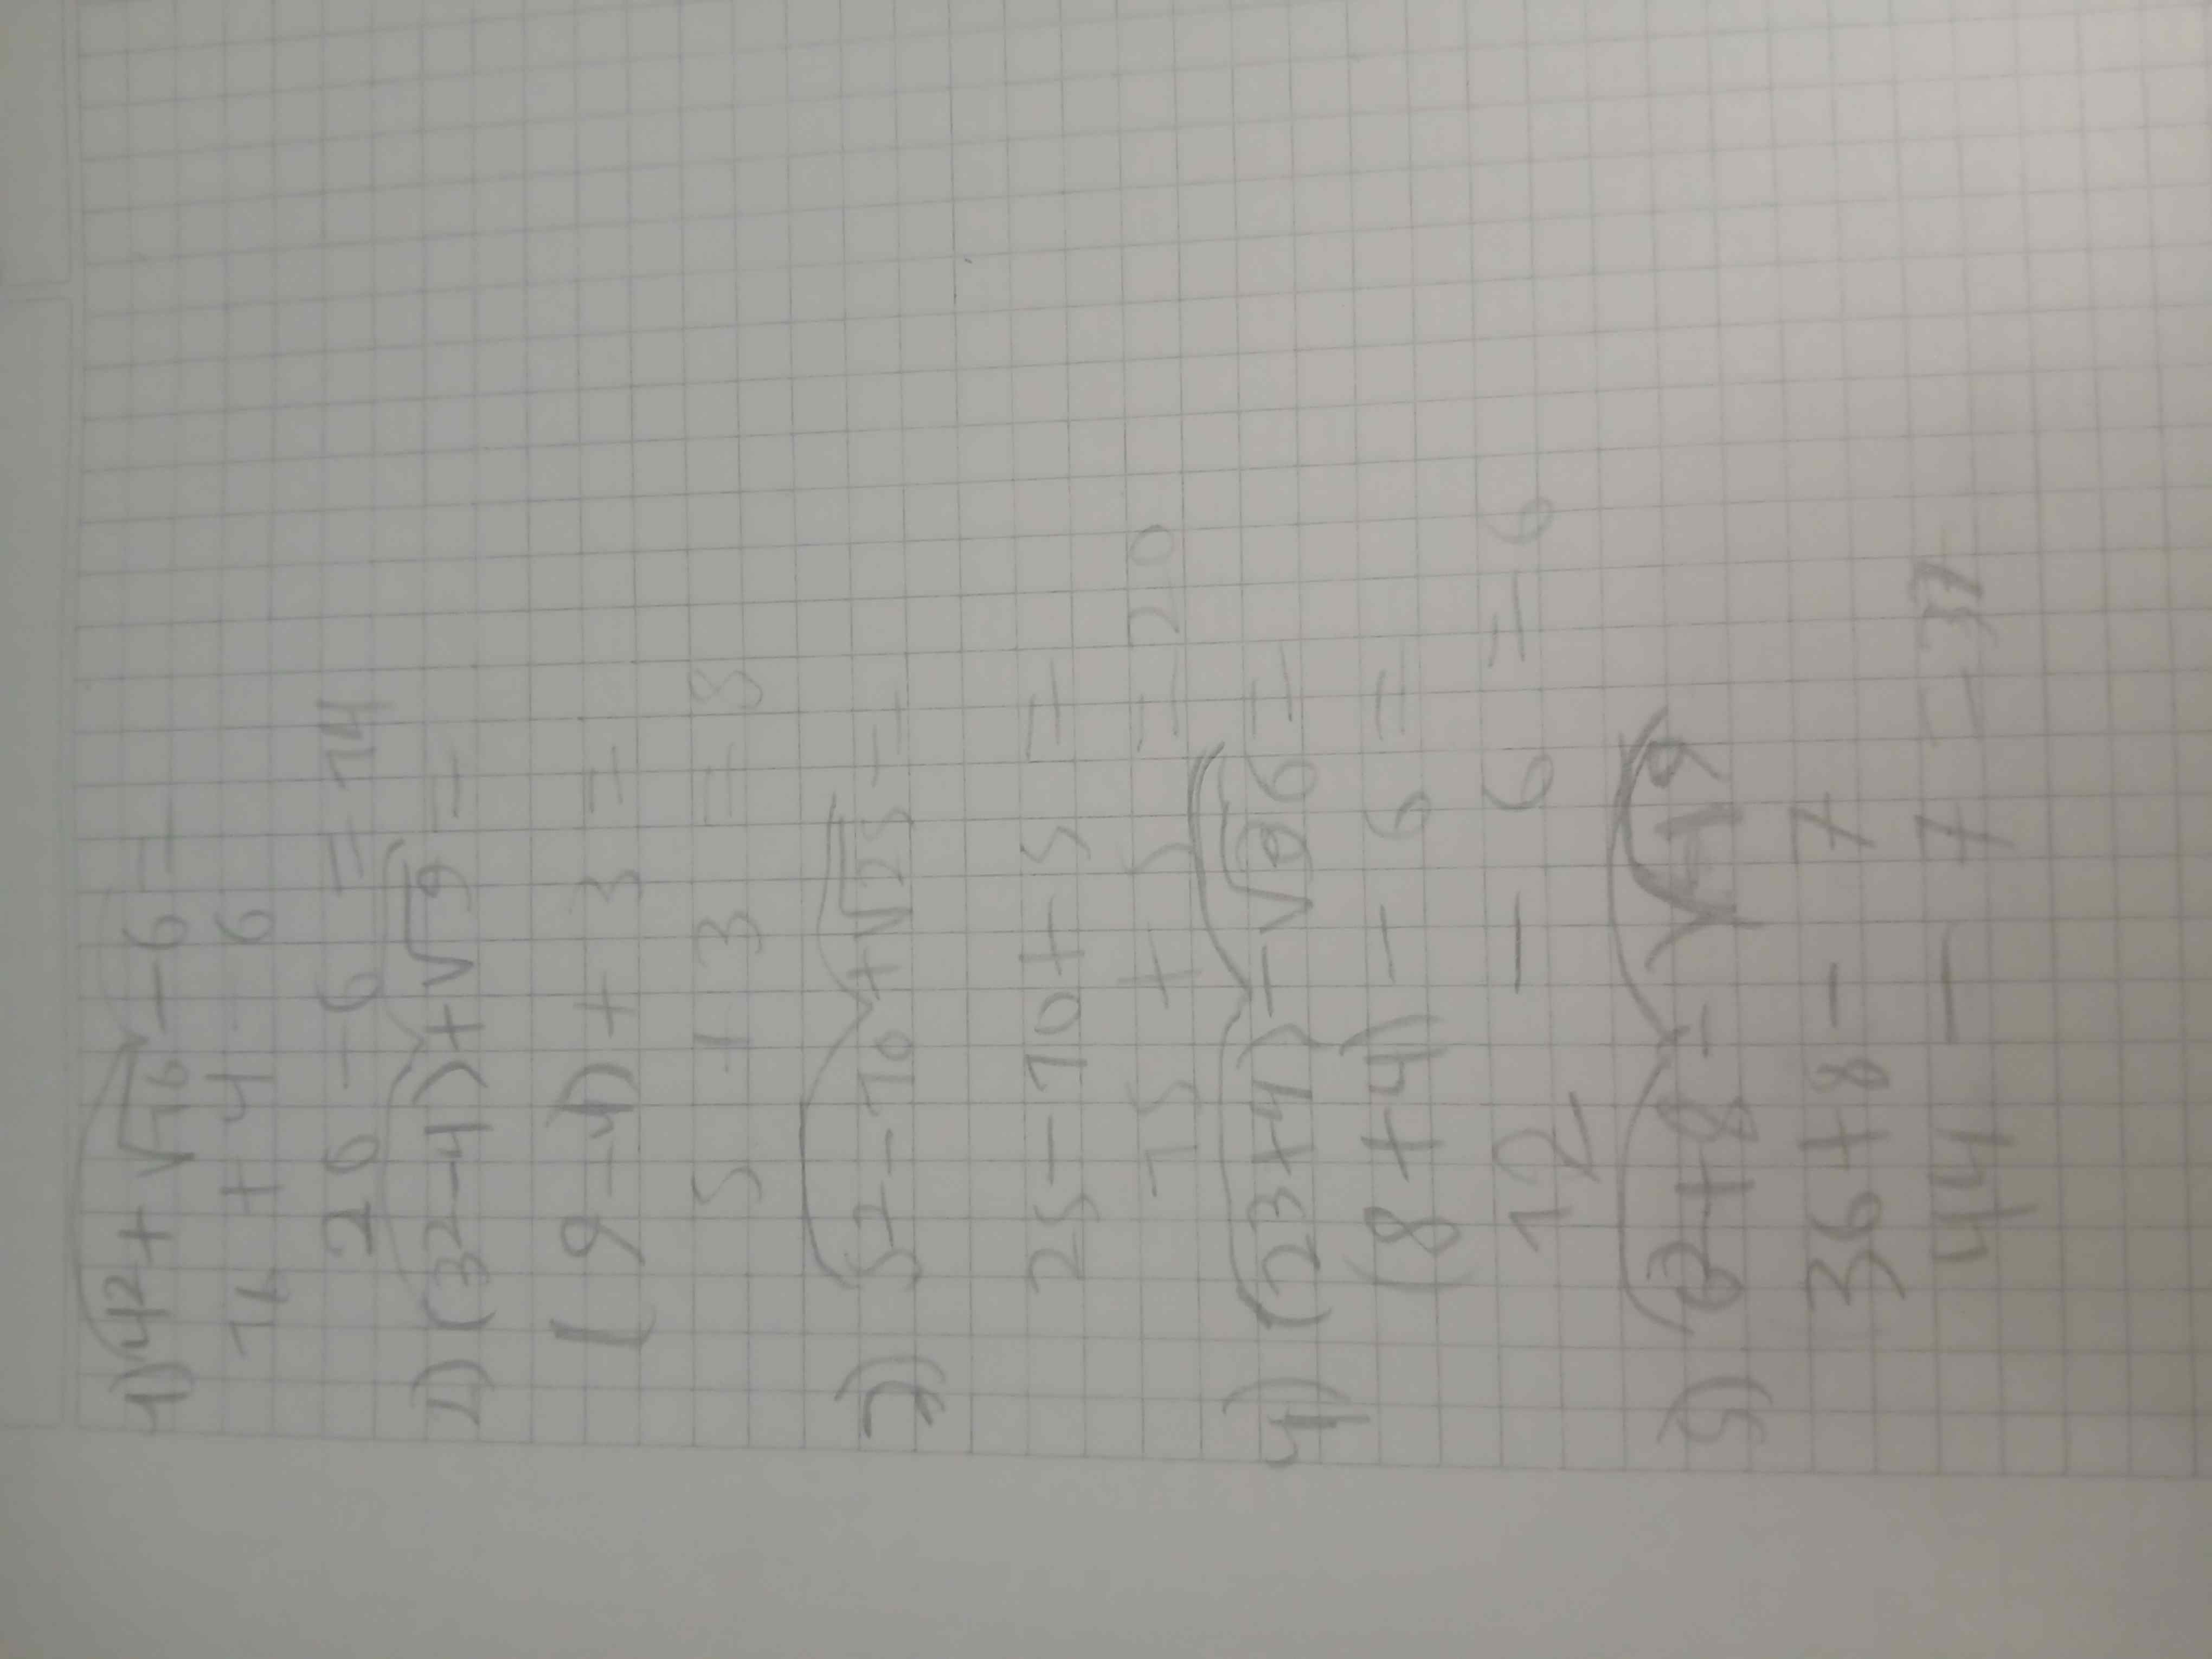 1) 4² + √16 - 6 =
16 + 4 6
20 - 6 = 14
2) (3² - 4) + √9 =
(9 - 4) + 3 =
5 + 3 = 8
3) 5² - 10 + √25 =
25 - 10 + 5 =
15 + 5 = 20
4) (2³ + 4) - √36 =
(8 + 4) - 6 =
12 - 6 = 6
5) 6² + 8 - √49
36 + 8 - 7
44 - 7 = 37